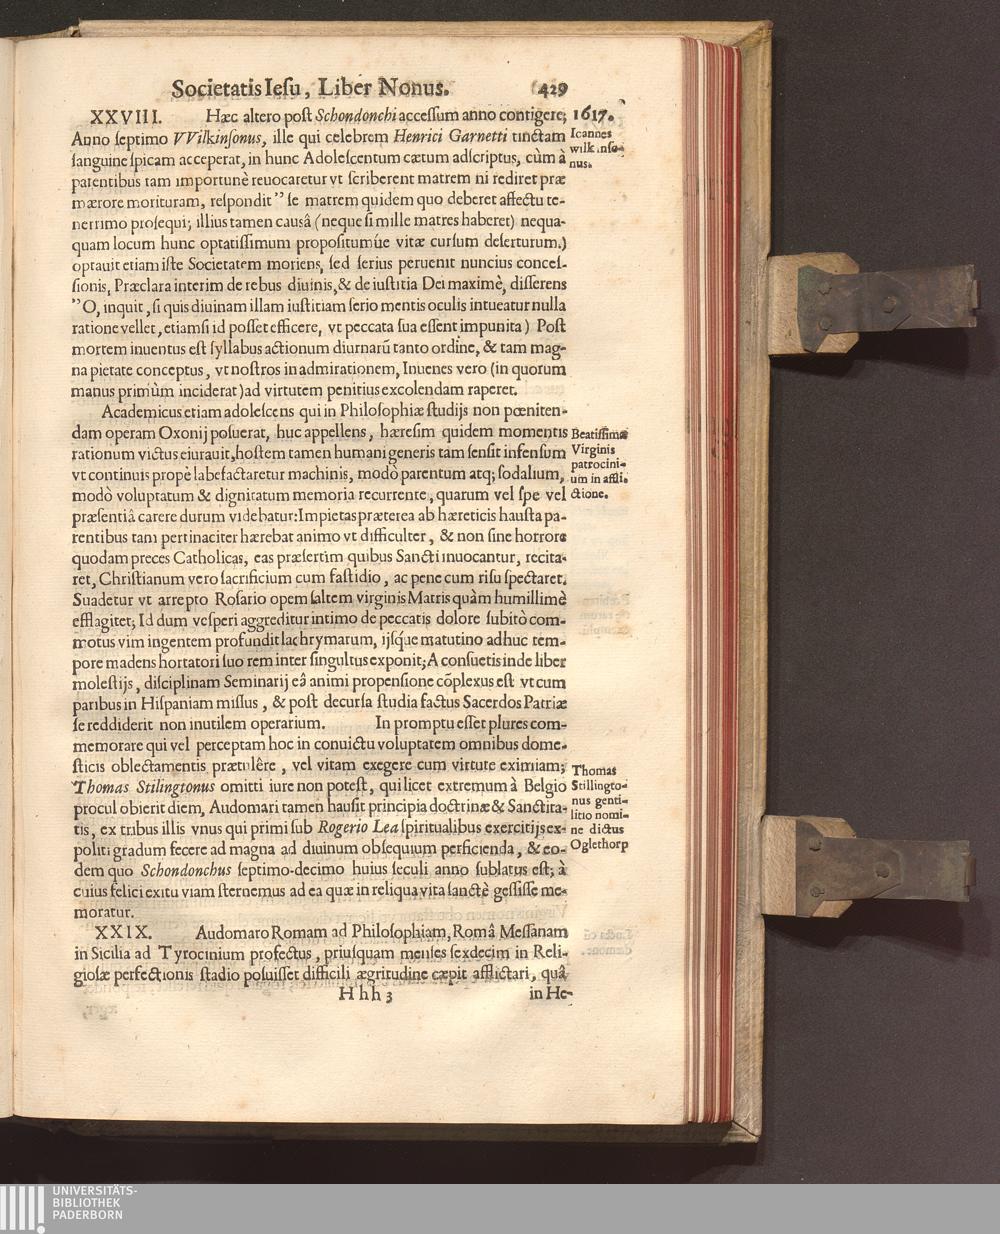 Societatis Iesu, Liber Nonus. 429
XXVIII. Hæc altero post Schondonchi accessum anno contigere; 1617.
Anno septimo VVilkinsonus, ille qui celebrem Henrici Garnetti tinctam
sanguine spicam acceperat, in hunc Adolescentum cætum adscriptus, cùm à
parentibus tam importunè reuocaretur vt scriberent matrem ni rediret præ
mærore morituram, respondit ” se matrem quidem quo deberet affectu te-
nerrimo prosequi; illius tamen causâ (neque si mille matres haberet) nequa-
quam locum hunc optatissimum propositumúe vitæ cursum deserturum.)
optauit etiam iste Societatem moriens, sed serius peruenit nuncius conces-
sionis, Præclara interim de rebus diuinis, & de iustitia Dei maximè, disserens
”O, inquit, si quis diuinam illam iustitiam serio mentis oculis intueatur nulla
ratione vellet, etiamsi id posset efficere, vt peccata sua essent impunita) Post
mortem inuentus est syllabus actionum diurnarũ tanto ordine, & tam mag-
na pietate conceptus, vt nostros in admirationem, Iuuenes vero (in quorum
manus primùm inciderat) ad virtutem penitius excolendam raperet.
Academicus etiam adolescens qui in Philosophiæ studijs non pœniten-
dam operam Oxonij posuerat, huc appellens, hæresim quidem momentis
rationum victus eiurauit, hostem tamen humani generis tàm sensit infensum
vt continuis propè labefactaretur machinis, modò parentum atq; sodalium,
modò voluptatum & dignitatum memoria recurrente, quarum vel spe vel
præsentiâ carere durum videbatur: Impietas præterea ab hæreticis hausta pa-
rentibus tam pertinaciter hærebat animo vt difficulter, & non sine horrore
quodam preces Catholicas, eas præsertim quibus Sancti inuocantur, recita-
ret, Christianum vero sacrificium cum fastidio, ac pene cum risu spectaret.
Suadetur vt arrepto Rosario opem saltem virginis Matris quàm humillimè
efflagitet; Id dum vesperi aggreditur intimo de peccatis dolore subitò com-
motus vim ingentem profundit lachrymarum, ijsq́ue matutino adhuc tem-
pore madens hortatori suo rem inter singultus exponit; A consuetis inde liber
molestijs, disciplinam Seminarij eâ animi propensione cõplexus est vt cum
paribus in Hispaniam missus, & post decursa studia factus Sacerdos Patriæ
se reddiderit non inutilem operarium. In promptu esset plures com-
memorare qui vel perceptam hoc in conuictu voluptatem omnibus dome-
sticis oblectamentis prætulêre, vel vitam exegere cum virtute eximiam;
Thomas Stilingtonus omitti iure non potest, qui licet extremum à Belgio
procul obierit diem, Audomari tamen hausit principia doctrinæ & Sanctita-
tis, ex tribus illis vnus qui primi sub Rogerio Lea spiritualibus exercitijs ex-
politi gradum fecere ad magna ad diuinum obsequium perficienda, & eo-
dem quo Schondonchus septimo-decimo huius seculi anno sublatus est; à
cuius felici exitu viam sternemus ad ea quæ in reliqua vita sanctè gessisse me-
moratur.
XXIX. Audomaro Romam ad Philosophiam, Româ Messanam
in Sicilia ad Tyrocinium profectus, priusquam menses sexdecim in Reli-
giosæ perfectionis stadio posuisset difficili ægritudine cæpit afflictari, quâ
Hhh 3 in He-
Ioannes
wilkinso-
nus.
Beatissimæ
Virginis
patrocini-
um in affli-
ctione.
Thomas
Stillingto-
nus genti-
litio nomi-
ne dictus
Oglethorp
UNIVERSITÄTS-
BIBLIOTHEK
PADERBORN